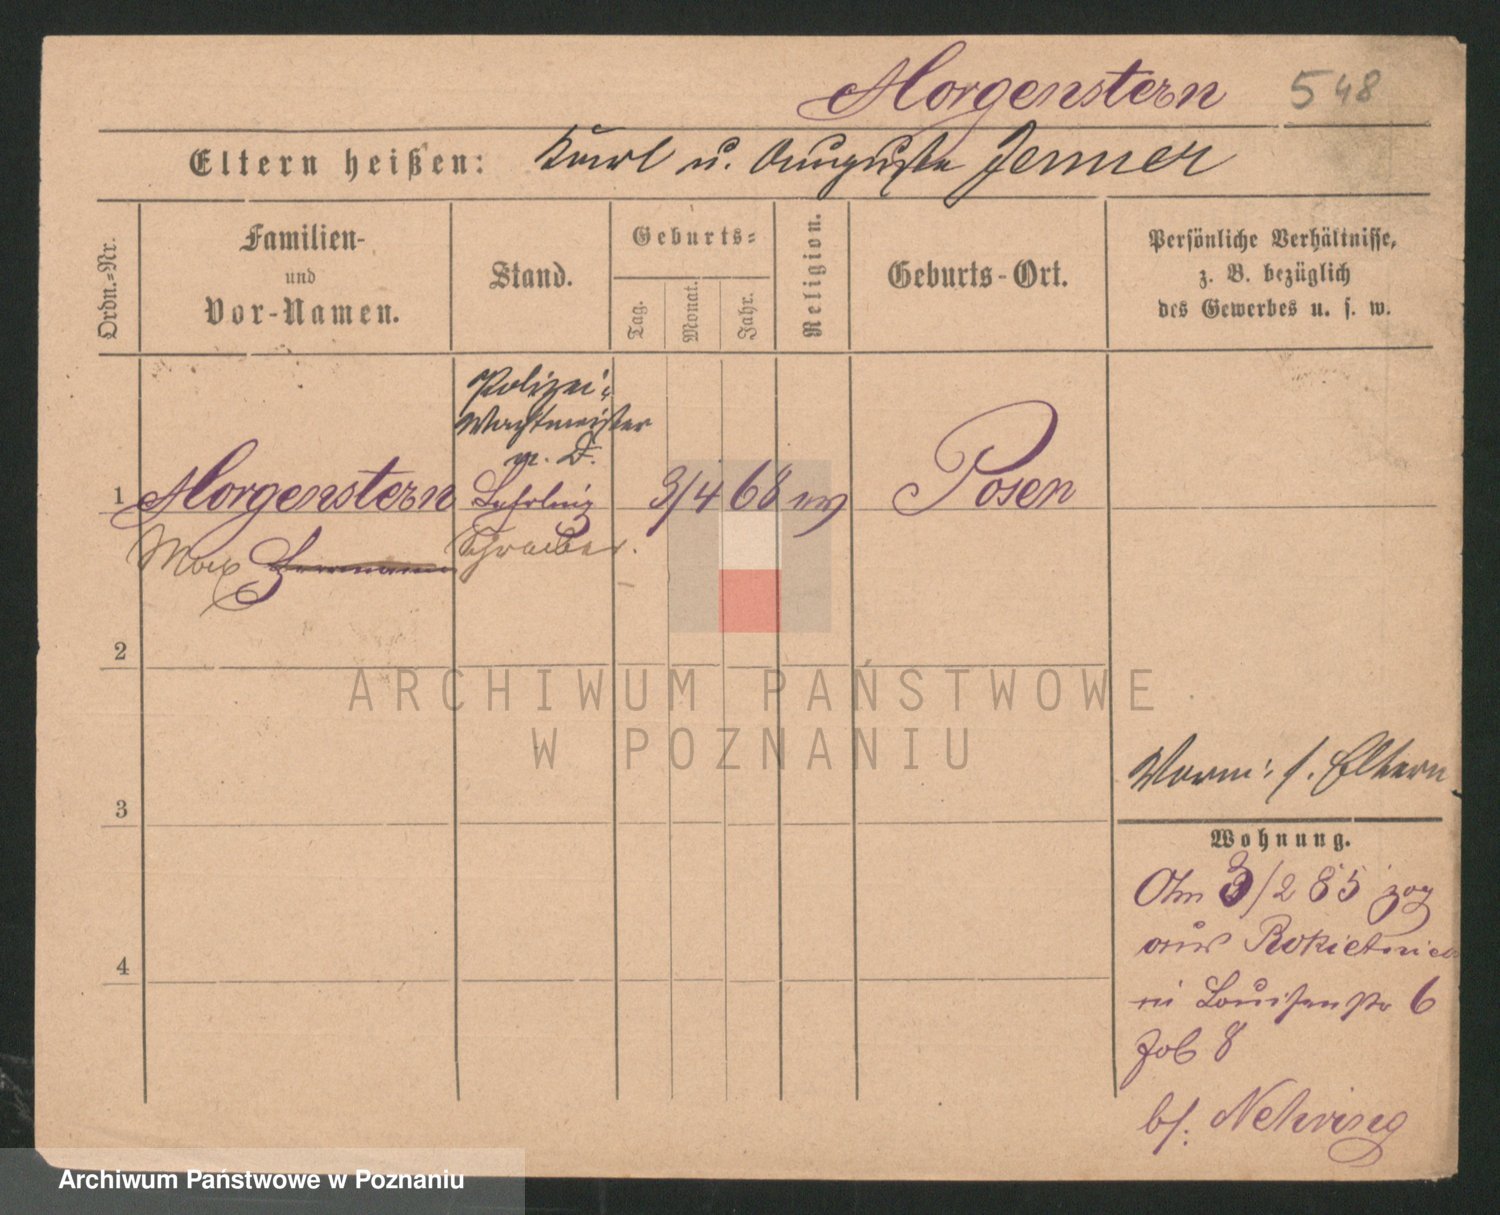 Morgenstern 548
Eltern heißen: Karl u. Auguste Jenner
Ordn.=Nr.
Familien-
und
Vor-Namen.
Stand.
Geburts=
Tag.
Monat.
Jahr.
Religion.
Geburts-Ort.
Persönliche Verhältnisse,
z. B. bezüglich
des Gewerbes u. s. w.
Polizei:
Wachtmeister
D.
1 Morgenstern Lehrling 3/4 68 Posen
Max Hermann Schreiber.
2
3
4
Vorm: s. Eltern.
Wohnung.
Am 3/2 85 zog
aus Rokietnica
in Louisenstr 6
Job 8
bf: Nehring
ARCHIWUM PAŃSTWOWE
W POZNANIU
Archiwum Państwowe w Poznaniu